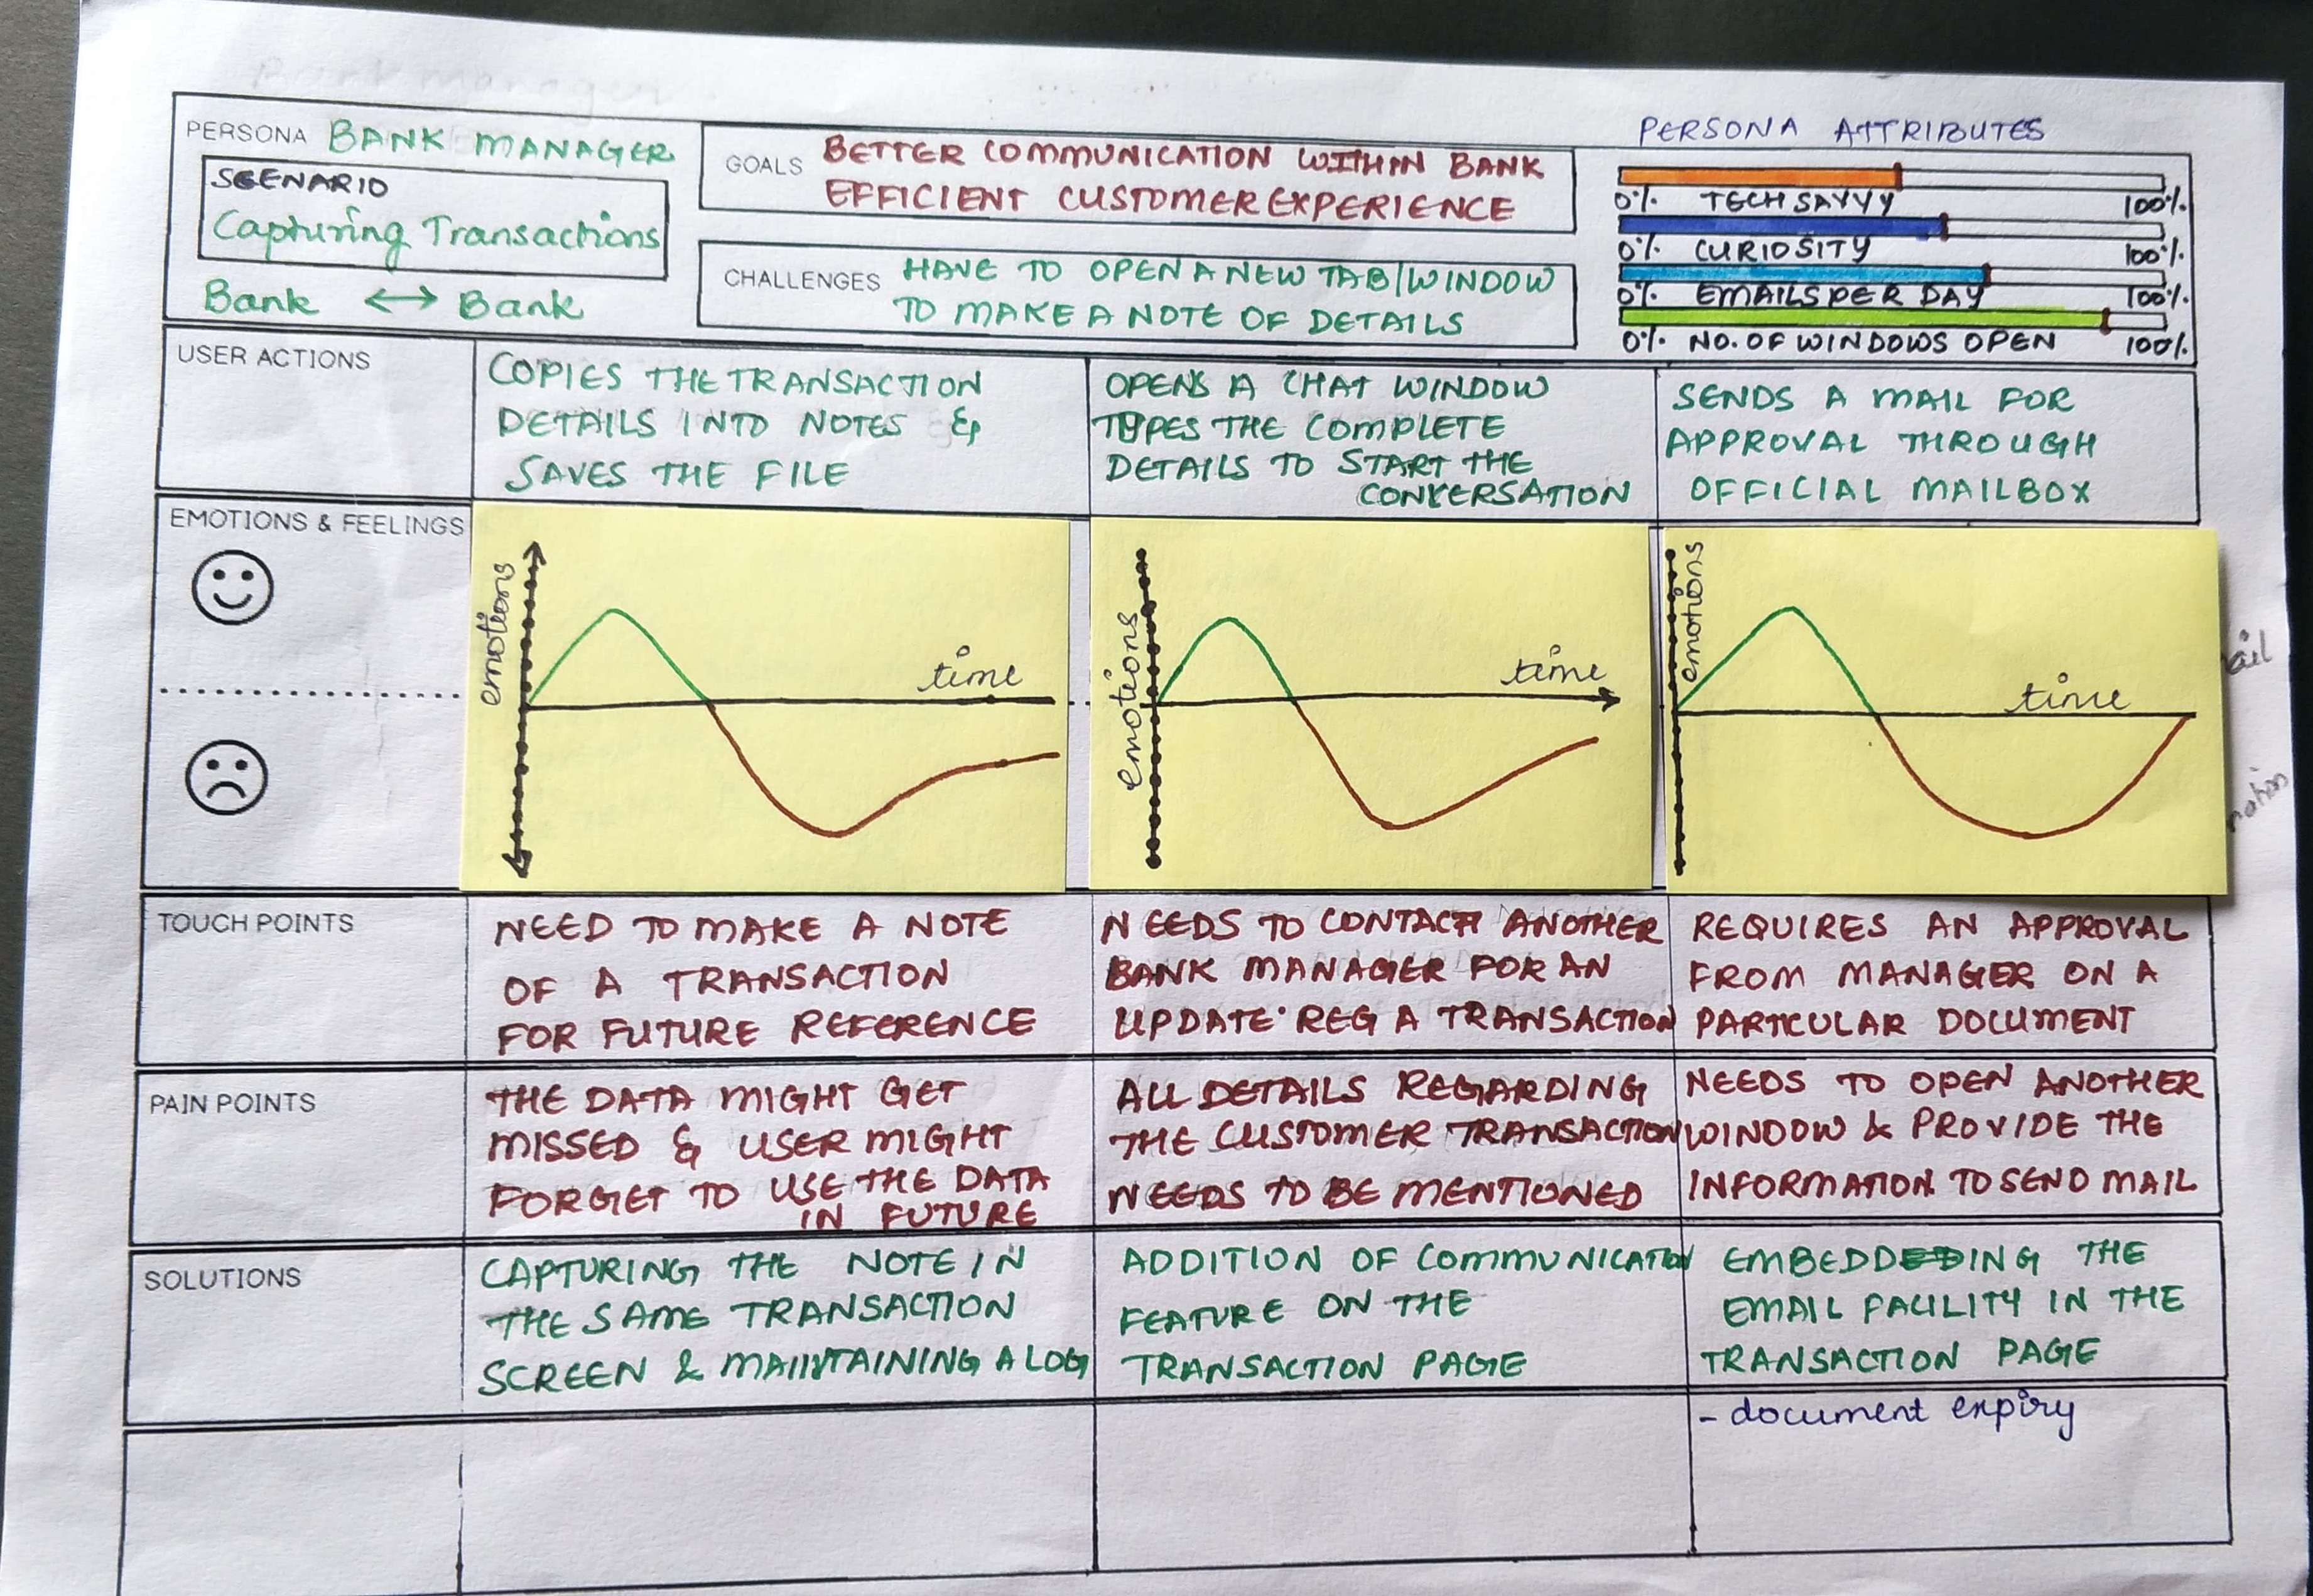 PERSONA BANK MANAGER
SCENARIO
Capturing Transactions
Bank ↔ Bank
GOALS BETTER COMMUNICATION WITHIN BANK
EFFICIENT CUSTOMER EXPERIENCE
CHALLENGES HAVE TO OPEN A NEW TAB/WINDOW
TO MAKE A NOTE OF DETAILS
PERSONA ATTRIBUTES
0% TECH SAVVY 100%
0% CURIOSITY 100%
0% EMAILS PER DAY 100%
0% NO. OF WINDOWS OPEN 100%
USER ACTIONS
COPIES THE TRANSACTION
DETAILS INTO NOTES &
SAVES THE FILE
OPENS A CHAT WINDOW
TYPES THE COMPLETE
DETAILS TO START THE
CONVERSATION
SENDS A MAIL FOR
APPROVAL THROUGH
OFFICIAL MAILBOX
EMOTIONS & FEELINGS
emotions
time
emotions
time
emotions
time
TOUCH POINTS
NEED TO MAKE A NOTE
OF A TRANSACTION
FOR FUTURE REFERENCE
NEEDS TO CONTACT ANOTHER
BANK MANAGER FOR AN
UPDATE REG A TRANSACTION
REQUIRES AN APPROVAL
FROM MANAGER ON A
PARTICULAR DOCUMENT
PAIN POINTS
THE DATA MIGHT GET
MISSED & USER MIGHT
FORGET TO USE THE DATA
IN FUTURE
ALL DETAILS REGARDING
THE CUSTOMER TRANSACTION
NEEDS TO BE MENTIONED
NEEDS TO OPEN ANOTHER
WINDOW & PROVIDE THE
INFORMATION TO SEND MAIL
SOLUTIONS
CAPTURING THE NOTE IN
THE SAME TRANSACTION
SCREEN & MAINTAINING A LOG
ADDITION OF COMMUNICATION
FEATURE ON THE
TRANSACTION PAGE
EMBEDDING THE
EMAIL FACILITY IN THE
TRANSACTION PAGE
- document expiry